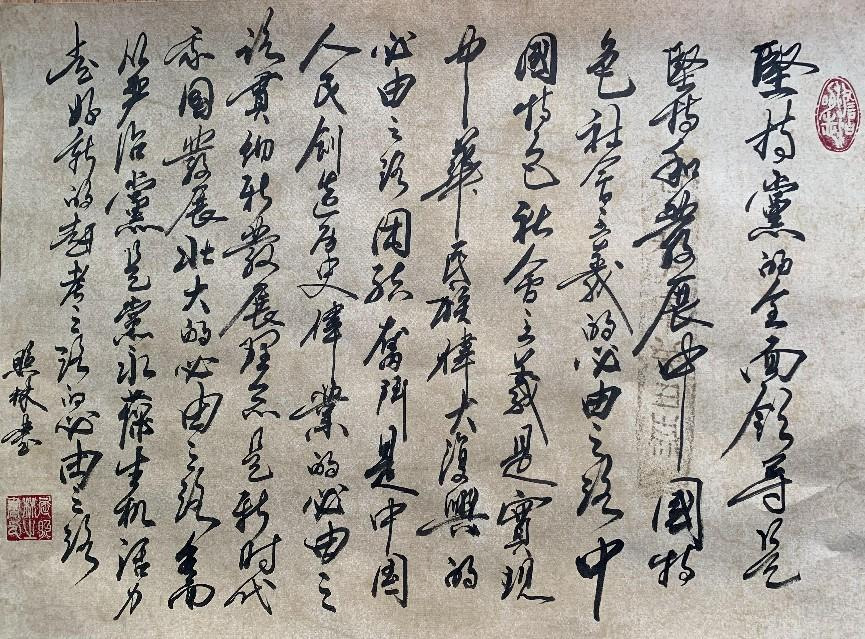 堅持黨的全面領導是
堅持和發展中國特
色社會主義的必由之路中
國特色社會主義是實現
中華民族偉大復興的
必由之路团結奮鬥是中国
人民創造历史偉業的必由之
路貫彻新發展理念是新时代
我国發展壮大的必由之路全面
从严治黨是黨永葆生机活力
走好新的趕考之路的必由之路
照林書